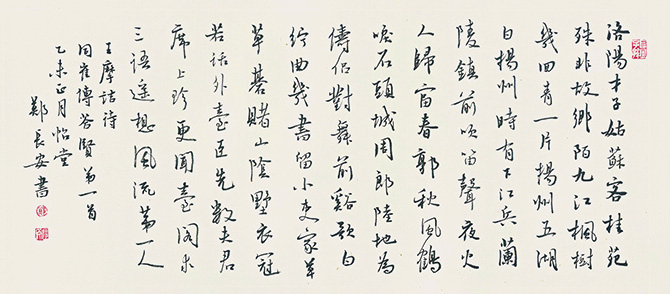 洛陽才子姑蘇客桂苑
殊非故鄉陌九江楓樹
幾回青一片揚州五湖
白揚州時有下江兵蘭
陵鎮前吹笛聲夜火
人歸富春郭秋風鶴
唳石頭城周郎陸地為
儔侶對舞前谿歌白
紵曲幾書留小史家草
堂碁賭山陰墅衣冠
若話外臺臣先數夫君
席上珍更聞臺閣求
三語遙想風流第一人
王摩詰詩
同崔傅答賢弟一首
乙未正月怡堂
鄭長安書